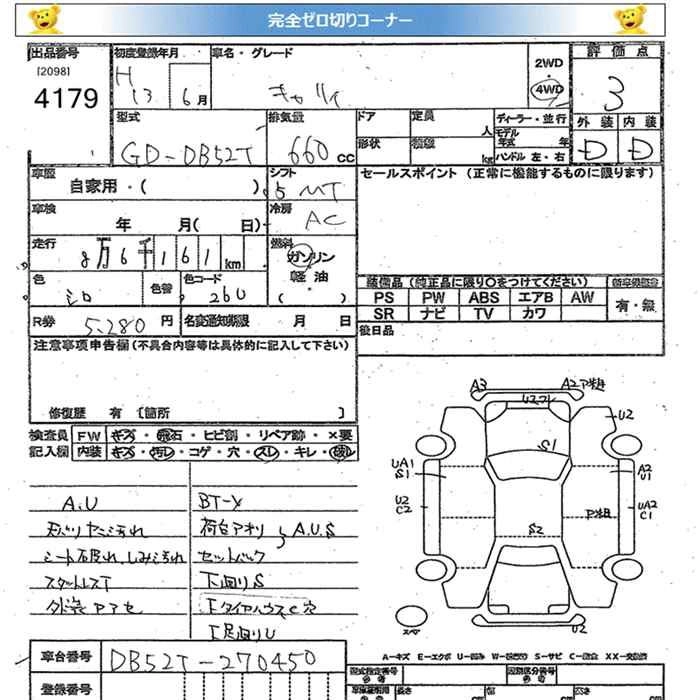 完全ゼロ切りコーナー
出品番号 初度登録年月 車名・グレード 2WD 評価点
[2098] H ・
4179 13 6月 キャリイ 4WD 3
型式 排気量 ドア 定員 ディーラー・並行 外装 内装
人 モデル年式 年
GD-DB52T 660cc 形状 kg ハンドル 左・右 D D
車歴 シフト セールスポイント (正常に機能するものに限ります)
自家用・( ) 5 MT
車検 冷房
年 月( 日) AC
走行 燃料
8万6千161km ガソリン
・
軽油
色 色替 色コード ( )
シロ 260
装備品 (純正品に限り○をつけてください)
PS PW ABS エアB AW 有・無
SR ナビ TV カワ
R券 5,280円 名変通知期限 月 日 後日品
注意事項申告欄(不具合内容等は具体的に記入して下さい)
修復歴 有 〔箇所 〕
検査員 FW キズ・飛石・ヒビ割・リペア跡・×要
記入欄 内装 キズ・汚レ・コゲ・穴・スレ・キレ・破レ
A.U
シート破れ、しみ汚れ
スタットレスT
BT-メ
荷台アオリ A.U.S
セットバック
下回りS
タイヤハウスC穴
足回りU
A3 A2 ア粗
U2
S1
UA1
S1
A2
U1
U2
C2
UA2
C1
ア粗
S2
スペア
U2
A-キズ E-エクボ U-凹み W-補修跡 S-サビ C-腐食 XX-交換済
車台番号 DB52T-270450
登録番号
型式指定番号 類別区分番号
長さ 幅 高さ